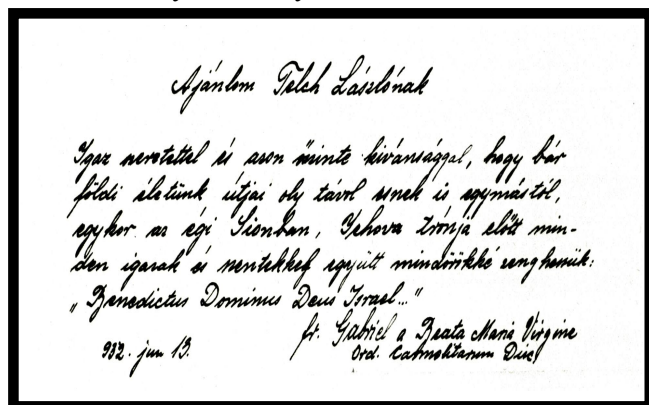 Ajánlom Telch Lászlónak
Igaz szeretettel és azon őszinte kivánsággal, hogy bár
földi életünk útjai oly távol esnek is egymástól,
egykor az égi Sionban, Jehova trónja előtt min-
den igazak és szentekkel együtt mindörökké zenghessük:
„Benedictus Dominus Deus Israel..."
fr. Gabriel a Beata Maria Virgine
932. jun 13. Ord. Carmelitarum Disc.